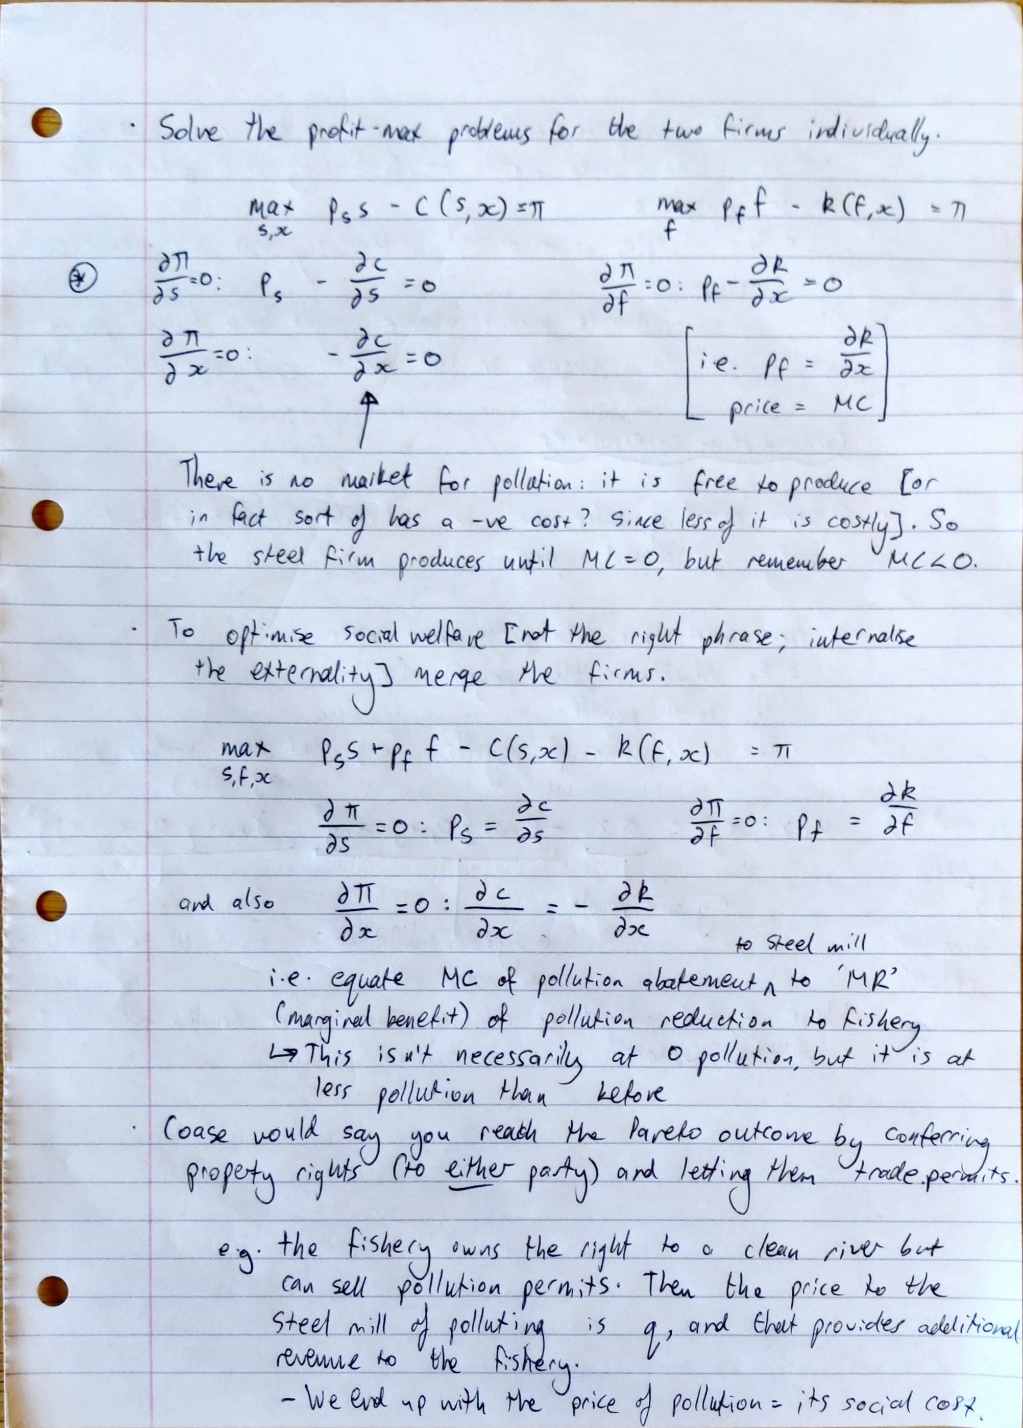 · Solve the profit-max problems for the two firms individually.
max s,x  p_s s - c(s,x) = π    max f  p_f f - k(f,x) = π
⊛ ∂π/∂s = 0: p_s - ∂c/∂s = 0    ∂π/∂f = 0: p_f - ∂k/∂x = 0
∂π/∂x = 0: - ∂c/∂x = 0    [i.e. p_f = ∂k/∂x
↑    price = MC]
There is no market for pollution: it is free to produce [or
in fact sort of has a -ve cost? Since less of it is costly]. So
the steel firm produces until MC=0, but remember MC<0.
· To optimise social welfare [not the right phrase; internalise
the externality] merge the firms.
max s,f,x  p_s s + p_f f - c(s,x) - k(f,x) = π
∂π/∂s = 0: p_s = ∂c/∂s    ∂π/∂f = 0: p_f = ∂k/∂f
and also ∂π/∂x = 0: ∂c/∂x = - ∂k/∂x
to steel mill
i.e. equate MC of pollution abatement ∧ to 'MR'
(marginal benefit) of pollution reduction to fishery
↳ This isn't necessarily at 0 pollution, but it is at
less pollution than before
· Coase would say you reach the Pareto outcome by conferring
property rights (to either party) and letting them trade permits.
e.g. the fishery owns the right to a clean river but
can sell pollution permits. Then the price to the
steel mill of polluting is q, and that provides additional
revenue to the fishery.
- We end up with the price of pollution = its social cost.